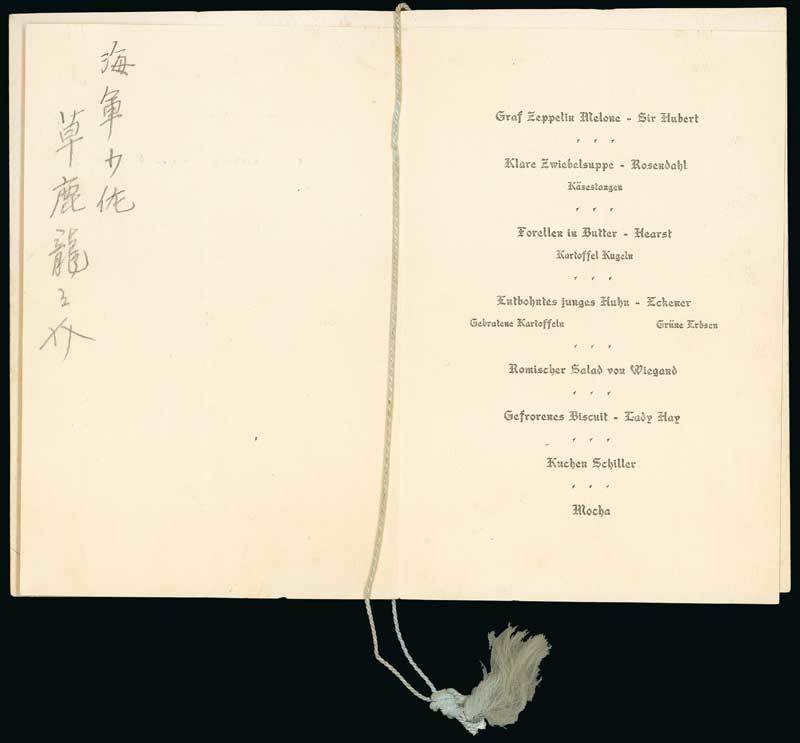 海軍少佐
草鹿龍之介
Graf Zeppelin Melone - Sir Hubert
Klare Zwiebelsuppe - Rosendahl
Käsestangen
Forellen in Butter - Hearst
Kartoffel Kugeln
Entbohntes junges Huhn - Eckener
Gebratene Kartoffeln Grüne Erbsen
Romischer Salad von Wiegand
Gefrorenes Biscuit - Lady Hay
Kuchen Schiller
Mocha